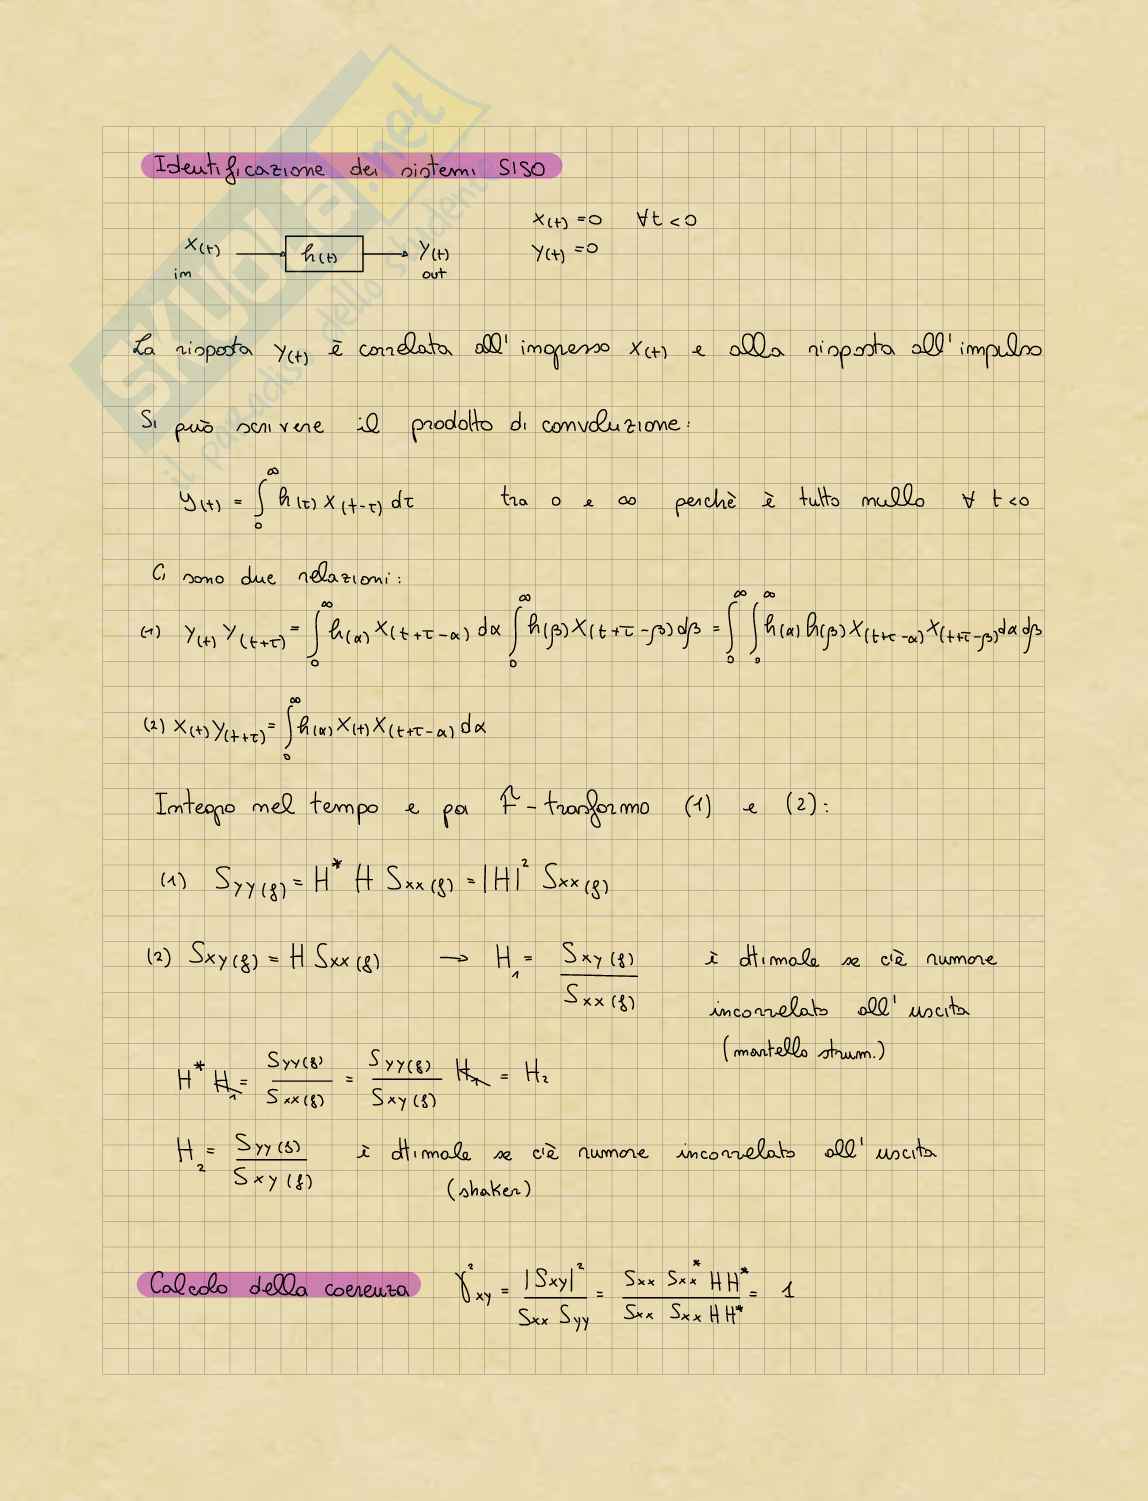 Identificazione dei sistemi SISO
x(t) = 0 ∀t < 0
x(t) → h(t) → y(t) y(t) = 0
in out
La risposta y(t) è correlata all'ingresso x(t) e alla risposta all'impulso
Si può scrivere il prodotto di convoluzione:
y(t) = ∫₀^∞ h(τ) x(t-τ) dτ tra 0 e ∞ perchè è tutto nullo ∀ t<0
Ci sono due relazioni:
(1) y(t) y(t+τ) = ∫₀^∞ h(α) x(t+τ-α) dα ∫₀^∞ h(β) x(t+τ-β) dβ = ∫₀^∞ ∫₀^∞ h(α) h(β) x(t+τ-α) x(t+τ-β) dα dβ
(2) x(t) y(t+τ) = ∫₀^∞ h(α) x(t) x(t+τ-α) dα
Integro nel tempo e poi F-trasformo (1) e (2):
(1) Syy(f) = H* H Sxx(f) = |H|² Sxx(f)
(2) Sxy(f) = H Sxx(f) → H₁ = Sxy(f) / Sxx(f) è ottimale se c'è rumore
incorrelato all'uscita
(martello strum.)
H* H₁ = Syy(f) / Sxx(f) = Syy(f) / Sxy(f) H₁ = H₂
H₂ = Syy(f) / Sxy(f) è ottimale se c'è rumore incorrelato all'uscita
(shaker)
Calcolo della coerenza γ²xy = |Sxy|² / Sxx Syy = Sxx Sxx* H H* / Sxx Sxx H H* = 1
SKUOLA.net
il paradiso dello studente